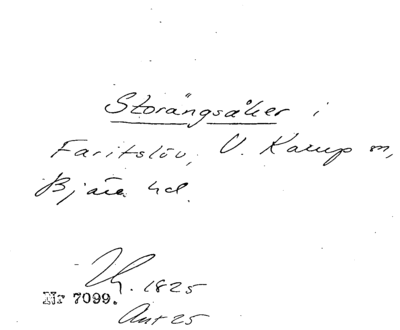 Storängsåker i
Faritslöv, V. Karup sn,
Bjäre hd.
Th. 1825
Nr 7099.
Ant 25